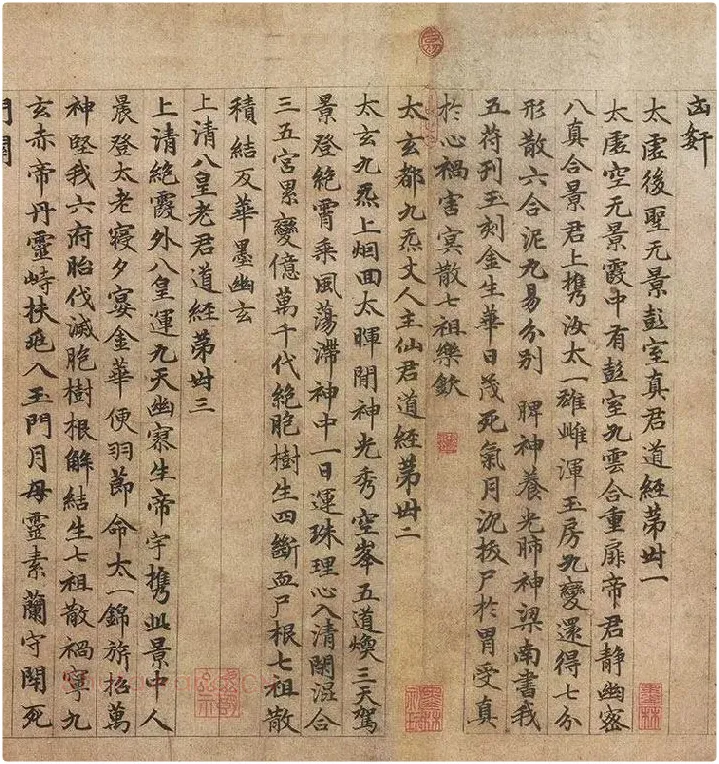 凶奸
太虛後聖无景彭室真君道經第卅一
太虛空无景霞中有彭室九雲合重扉帝君靜幽密
八真合景君上携汝太一雄雌渾玉房九變還得七分
形散六合泥九易分別 脾神養光肺神梁南書我
五苻刊玉刻金生華日茂死氣月沉拔尸於胃受真
於心禍害冥散七祖樂欽
太玄都九炁丈人主仙君道經第卅二
太玄九炁上烟回太暉閇神光秀空峯五道煥三天駕
景登絶霄乘風蕩滯神中一日運珠理心入清閑混合
三五宮累變億萬千代絶胞樹生四斷血尸根七祖散
積結反華墨幽玄
上清八皇老君道經第卅三
上清絶霞外八皇運九天幽寥生帝宇携此景中人
晨登太老寢夕宴金華便羽節命太一錦旂招萬
神堅我六府胎伐滅胞樹根解結生七祖散禍寧九
玄赤帝丹靈峙扶兆入玉門月母靈素蘭守閇死